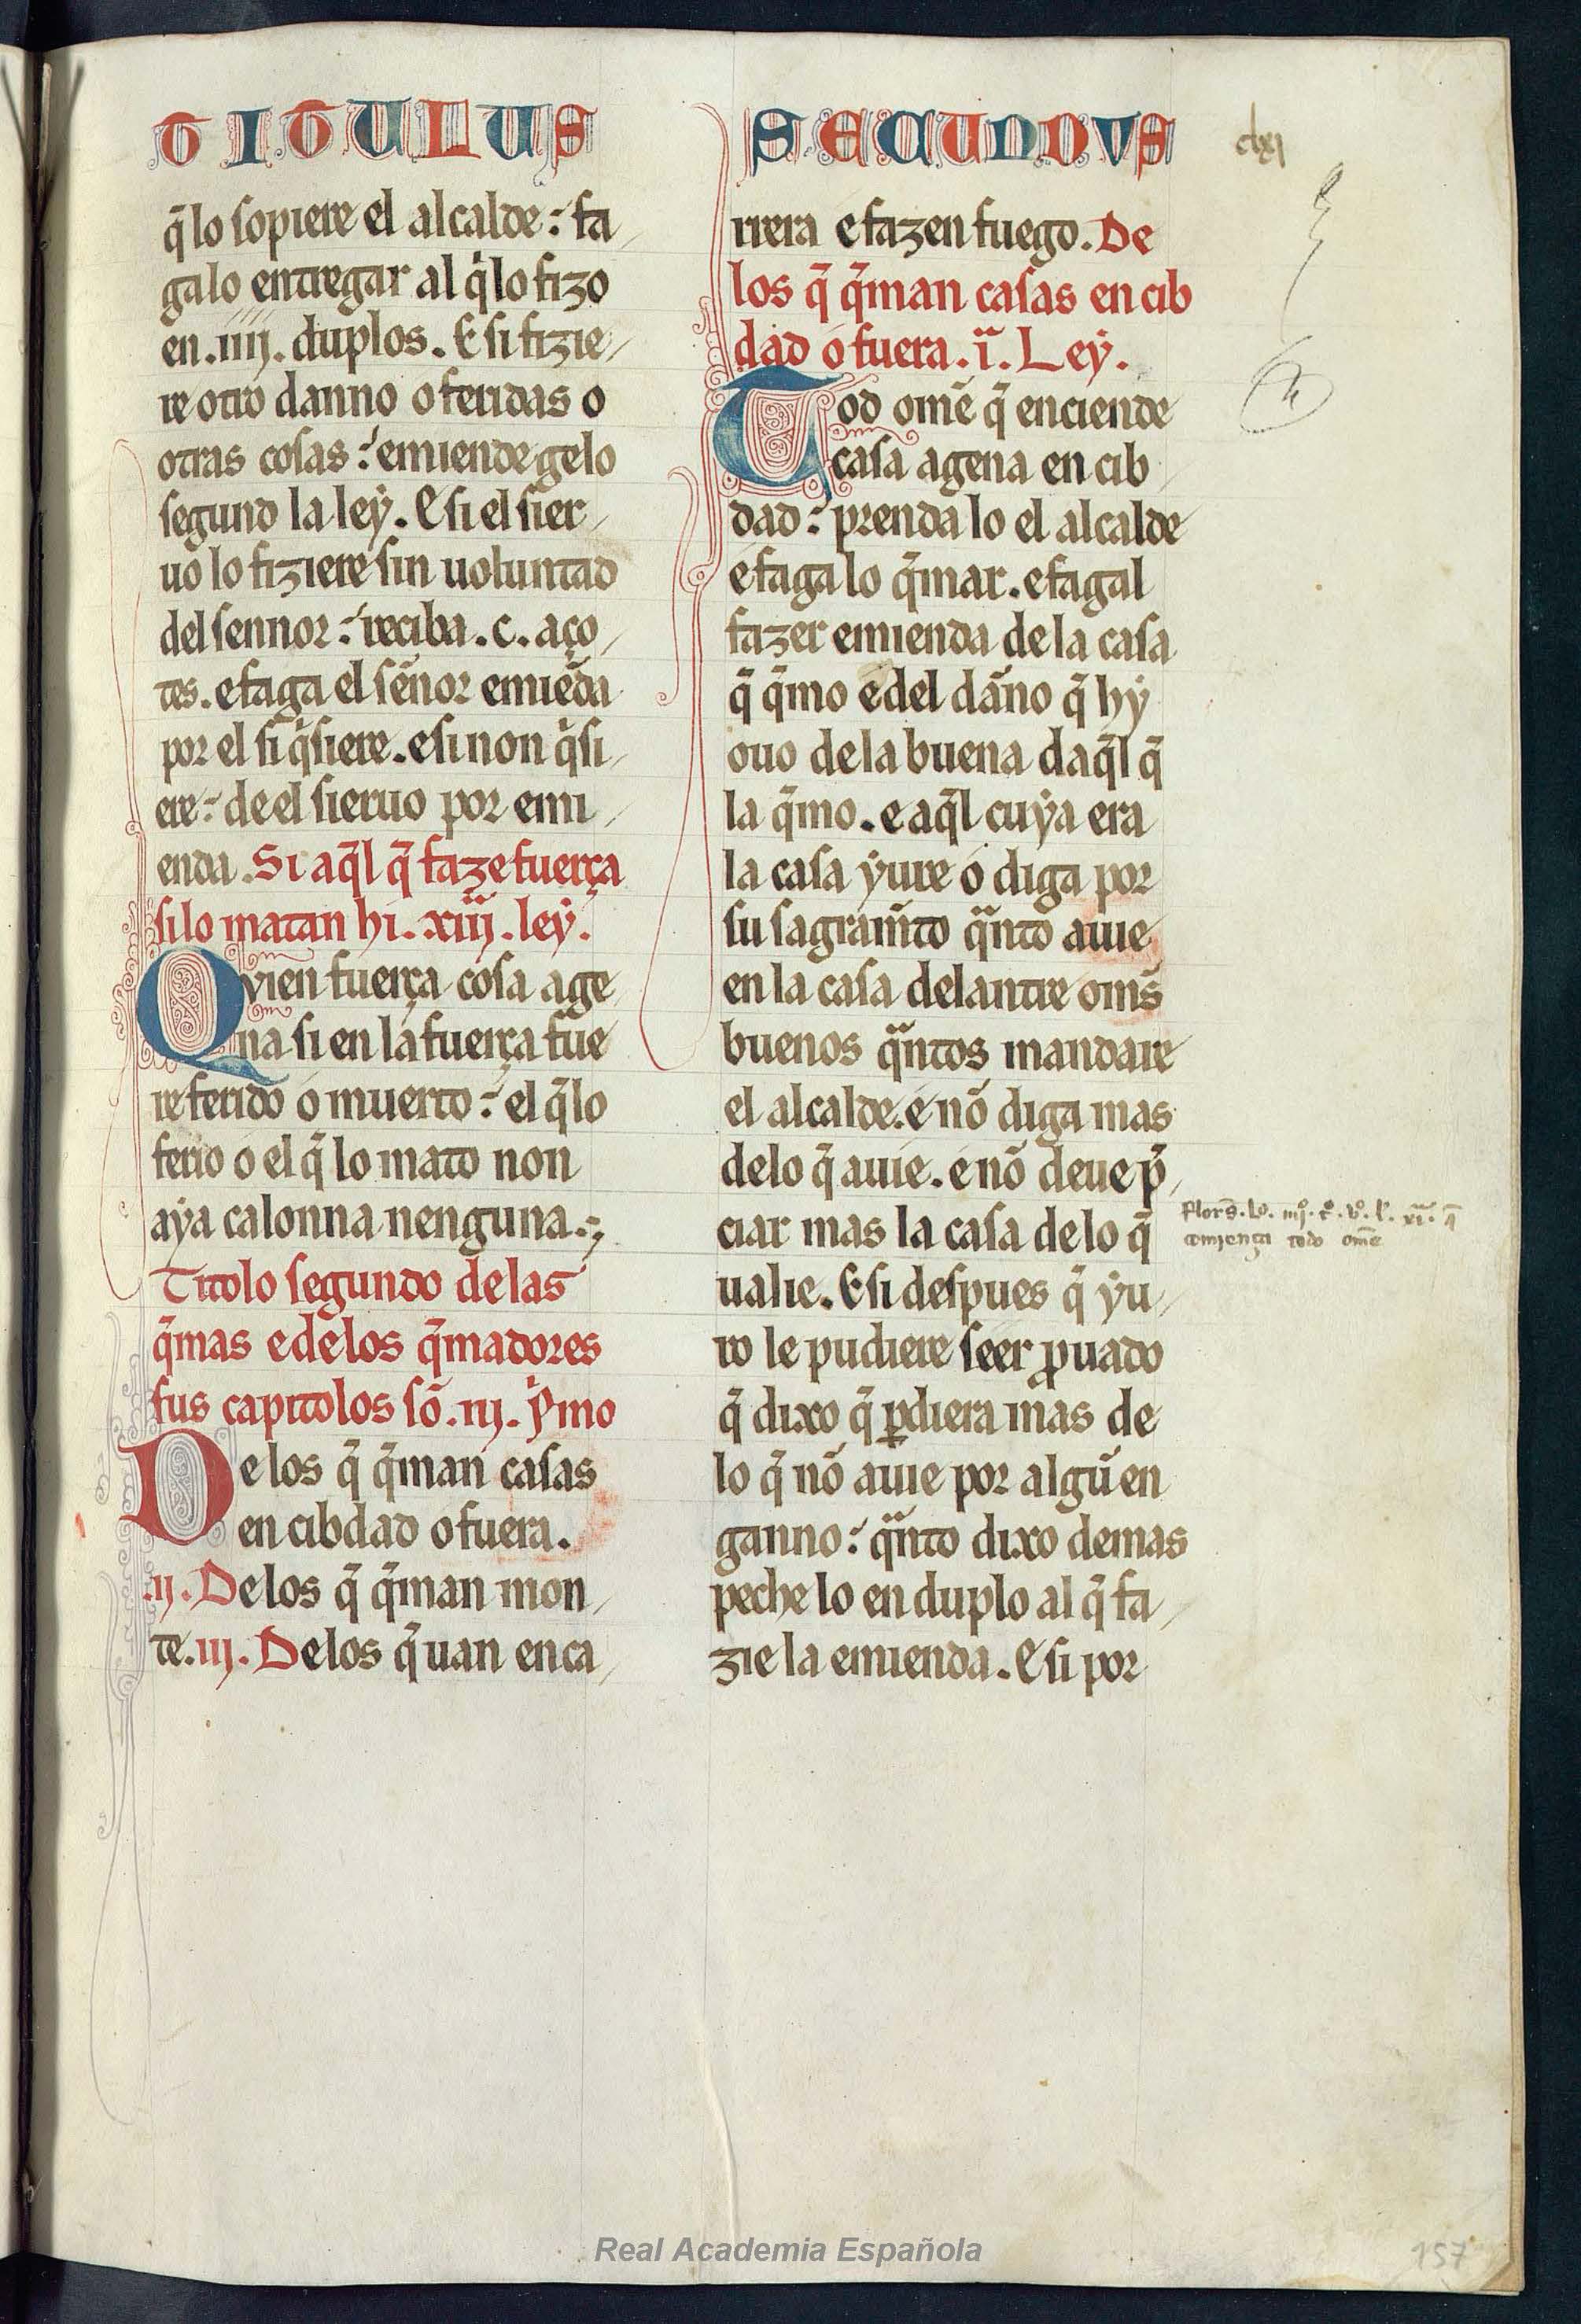 TITULUS
q̃ lo sopiere el alcalde: fa
galo entregar al q̇ lo fizo
en .iiij. duplos. E si fizie
re otro danno o feridas o
otras cosas: emiende gelo
segund la ley. E si el sier
uo lo fiziere sin uoluntad
del sennor: reciba .c. aço
tes. e faga el señor emiēda
por el si q̇siere. e si non q̇si
ere: de el sieruo por emi
enda. Si aq̃l q̃ faze fuerça
si lo matan hi. xiij. ley.
Qvien fuerça cosa age
na si en la fuerça fue
re ferido o muerto: el q̃ lo
ferio o el q̃ lo mato non
aya calonna nenguna.;
Titolo segundo de las
q̃mas e de los q̃madores
sus capitolos sō .iij. ṗmo
De los q̃ q̃man casas
en cibdad o fuera.
.ij. De los q̃ q̃man mon
te. iij. De los q̃ uan en ca
SECUNDVS
clxj
rrera e fazen fuego. De
los q̃ q̃man casas en cib
dad o fuera. i. Ley.
Tod omē q̃ enciende
casa agena en cib
dad: prenda lo el alcalde
e faga lo q̃mar. e fagal
fazer emienda de la casa
q̃ q̃mo e del dāno q̃ hy
ouo de la buena daq̃l q̃
la q̃mo. e aq̃l cuya era
la casa yure o diga por
su sagram̄to q̃nto auie
en la casa delantre om̄s
buenos q̃ntos mandare
el alcalde. e nō diga mas
de lo q̃ auie. e nō deue p̄
ciar mas la casa de lo q̃
ualie. E si despues q̃ yu
ro le pudiere seer ꝓuado
q̃ dixo q̃ ꝑdiera mas de
lo q̃ nō auie por algū en
ganno: q̃nto dixo demas
peche lo en duplo al q̃ fa
zie la emienda. E si por
comiença todo ome
Real Academia Española
157